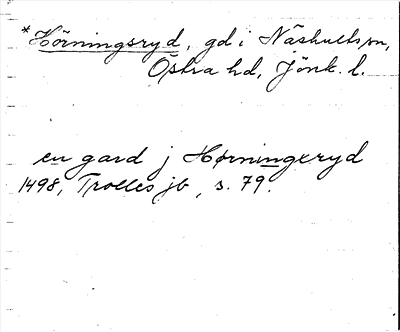 *Hörningsryd, gd i Näshults sn,
Östra hd, Jönk. l.
en gard j Hørningeryd
1498, Trolles jb, s. 79.